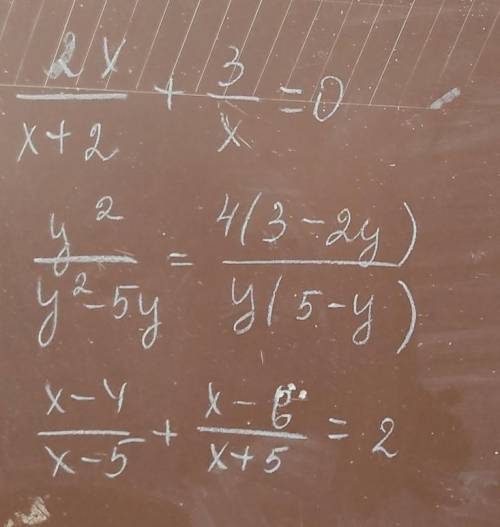 2x/(x+2) + 3/x = 0
y²/(y²-5y) = 4(3-2y)/(y(5-y))
(x-4)/(x-5) + (x-6)/(x+5) = 2